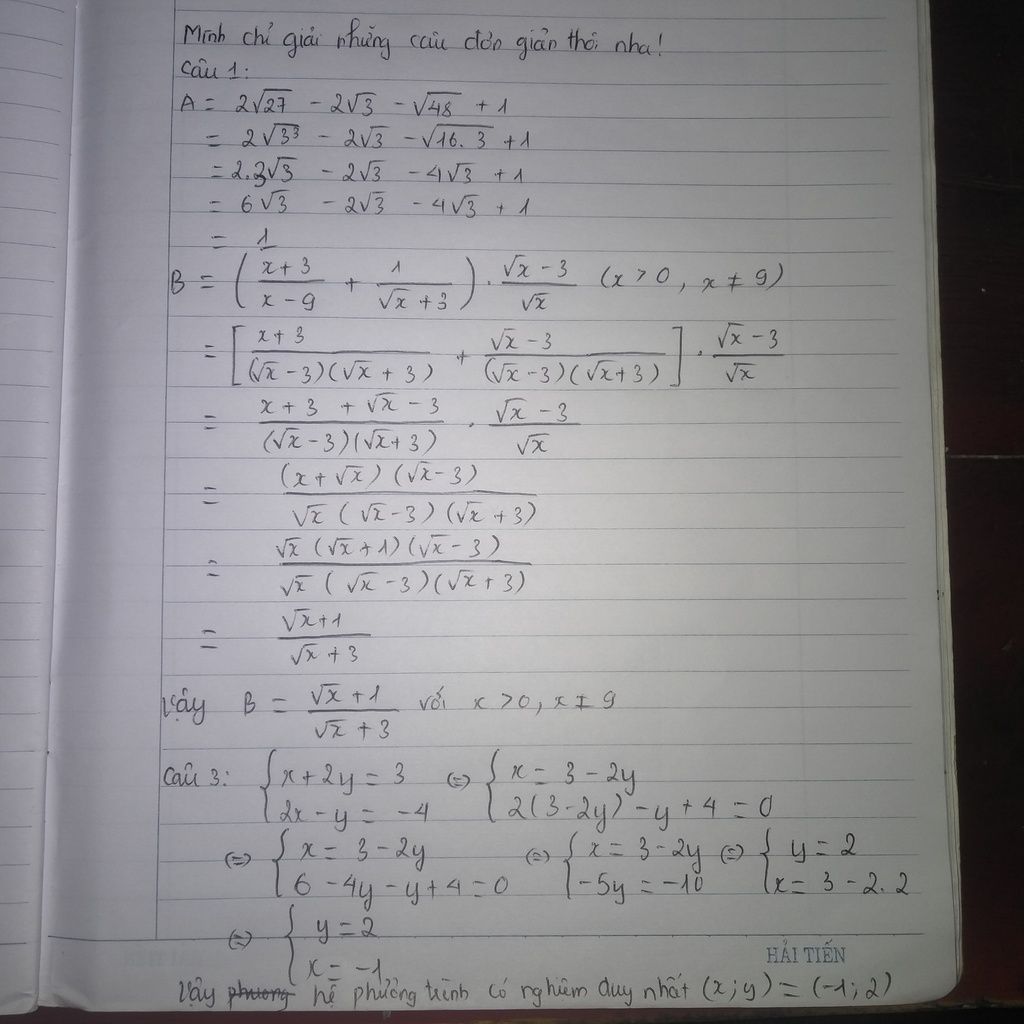 Mình chỉ giải những câu đơn giản thôi nha!
Câu 1:
A = 2√27 - 2√3 - √48 + 1
= 2√3³ - 2√3 - √16.3 + 1
= 2.3√3 - 2√3 - 4√3 + 1
= 6√3 - 2√3 - 4√3 + 1
= 1
B = ( (x+3)/(x-9) + 1/(√x+3) ) . (√x-3)/√x (x > 0, x ≠ 9)
= [ (x+3)/((√x-3)(√x+3)) + (√x-3)/((√x-3)(√x+3)) ] . (√x-3)/√x
= (x+3+√x-3)/((√x-3)(√x+3)) . (√x-3)/√x
= (x+√x)(√x-3)/(√x(√x-3)(√x+3))
= √x(√x+1)(√x-3)/(√x(√x-3)(√x+3))
= (√x+1)/(√x+3)
Vậy B = (√x+1)/(√x+3) với x > 0, x ≠ 9
Câu 3: { x + 2y = 3 ; 2x - y = -4 ⇔ { x = 3 - 2y ; 2(3-2y) - y + 4 = 0
⇔ { x = 3 - 2y ; 6 - 4y - y + 4 = 0 ⇔ { x = 3 - 2y ; -5y = -10 ⇔ { y = 2 ; x = 3 - 2.2
⇔ { y = 2 ; x = -1
HẢI TIẾN
Vậy phương hệ phương trình có nghiệm duy nhất (x;y) = (-1;2)